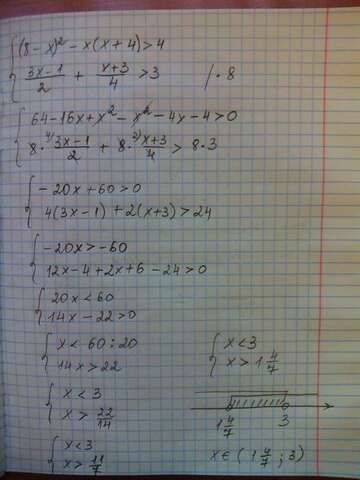 (8-x)² - x(x+4) > 4
3x-1/2 + x+3/4 > 3 / · 8
64-16x+x²-x²-4x-4>0
8·⁴ 3x-1/2 + 8·²⁾ x+3/4 > 8·3
-20x+60>0
4(3x-1)+2(x+3)>24
-20x>-60
12x-4+2x+6-24>0
20x<60
14x-22>0
x<60:20
14x>22
x<3
x>22/14
x<3
x>11/7
x<3
x>1 4/7
1 4/7 3
x∈(1 4/7; 3)